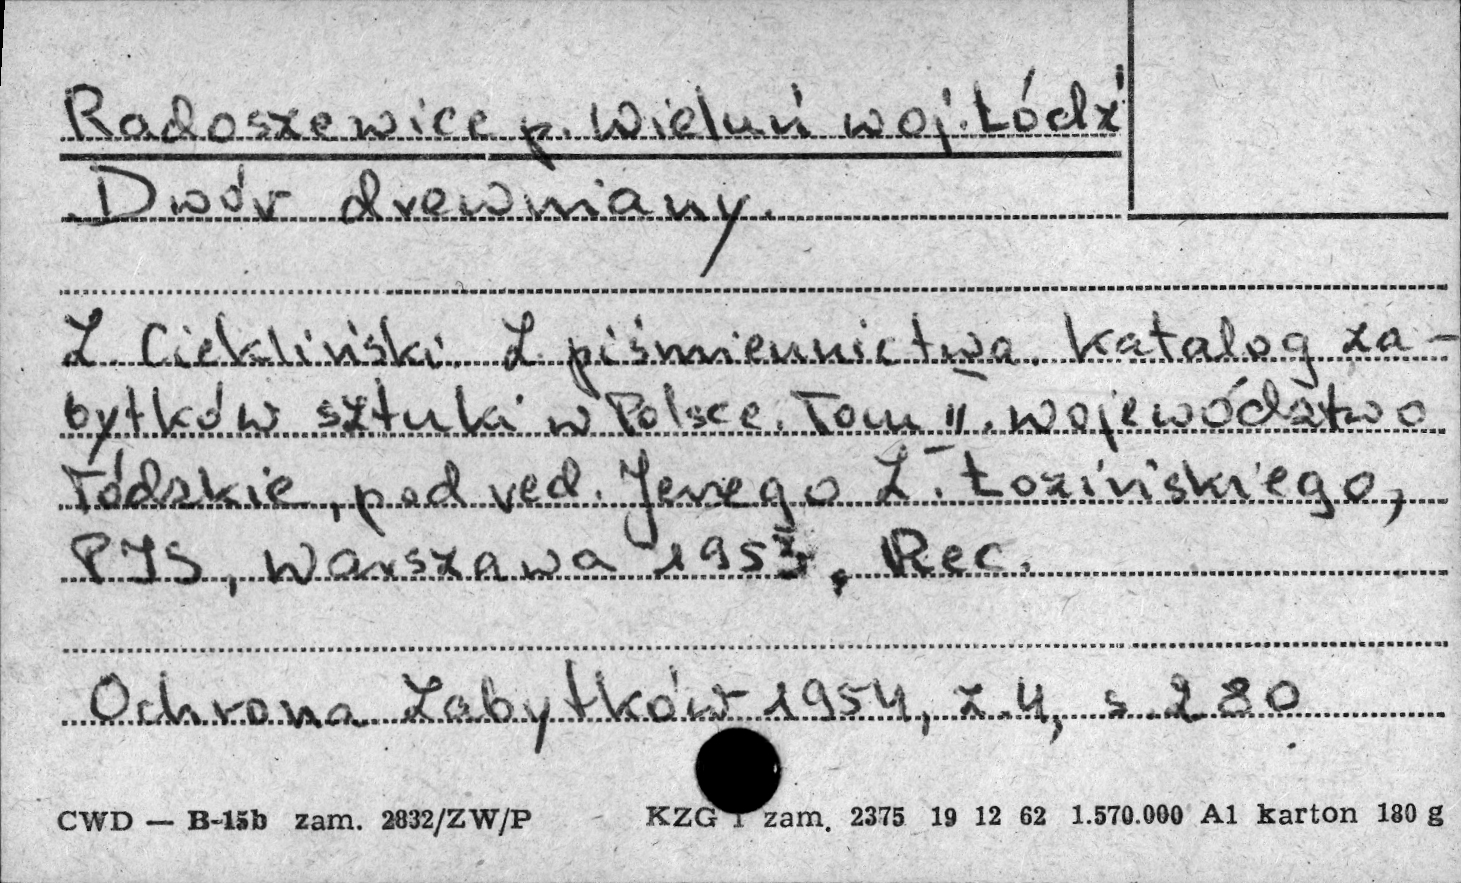 Radoszewice p. Wieluń woj. Łódź
Dwór drewniany.
Z. Ciekliński. Z piśmiennictwa. Katalog za-
bytków sztuki w Polsce. Tom II. Województwo
łódzkie, pod red. Jerzego Z. Łozińskiego,
PIS, Warszawa 1953, Rec.
Ochrona Zabytków 1954, z.4, s.280
CWD — B-15b zam. 2832/ZW/P KZG 1 zam. 2375 19 12 62 1.570.000 A1 karton 180 g